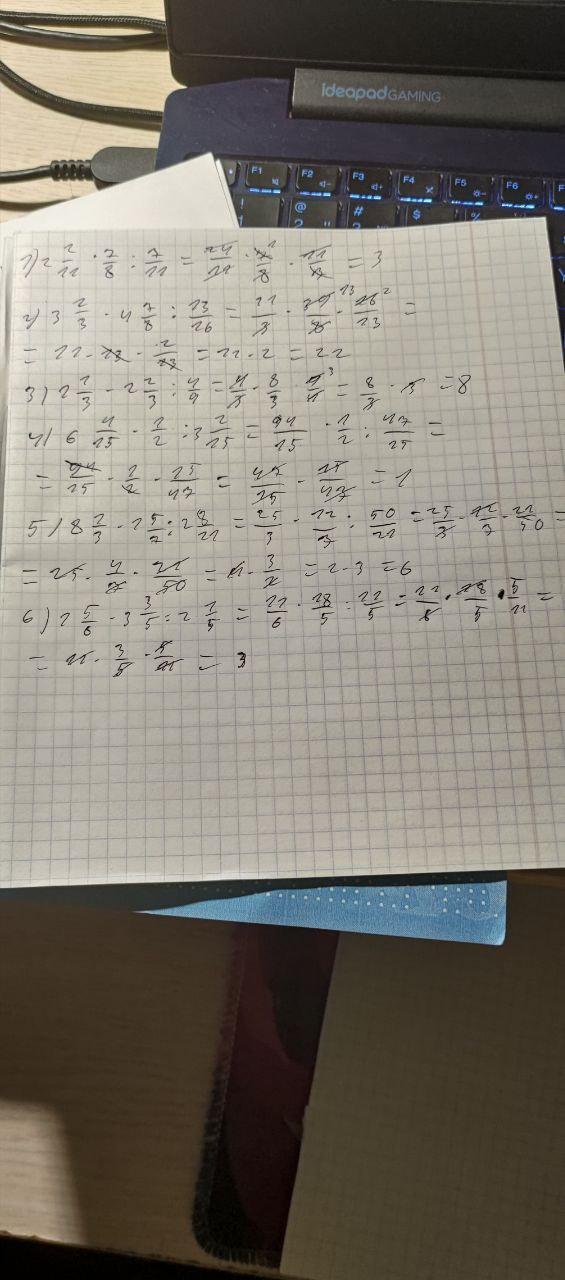 ideapad GAMING
F1 F2 F3 F4 F5 F6
! @ # $ %
2
1) 2 2/11 · 7/8 : 7/11 = 24/11 · 7/8 · 11/7 = 3
2) 3 2/3 · 4 7/8 : 13/16 = 11/3 · 39/8 · 16/13 =
= 11 · 13 · 2/13 = 11 · 2 = 22
3) 1 1/3 · 2 2/3 : 4/9 = 4/3 · 8/3 · 9/4 = 8/3 · 3 = 8
4) 6 4/15 · 1/2 : 3 2/15 = 94/15 · 1/2 : 47/15 =
= 94/15 · 1/2 · 15/47 = 47/15 · 15/47 = 1
5) 8 1/3 · 1 5/7 : 2 8/21 = 25/3 · 12/7 : 50/21 = 25/3 · 12/7 · 21/50 =
= 25 · 4/7 · 21/50 = 4 · 3/2 = 2 · 3 = 6
6) 1 5/6 · 3 3/5 : 2 1/5 = 11/6 · 18/5 : 11/5 = 11/6 · 18/5 · 5/11 =
= 11 · 3/5 · 5/11 = 3